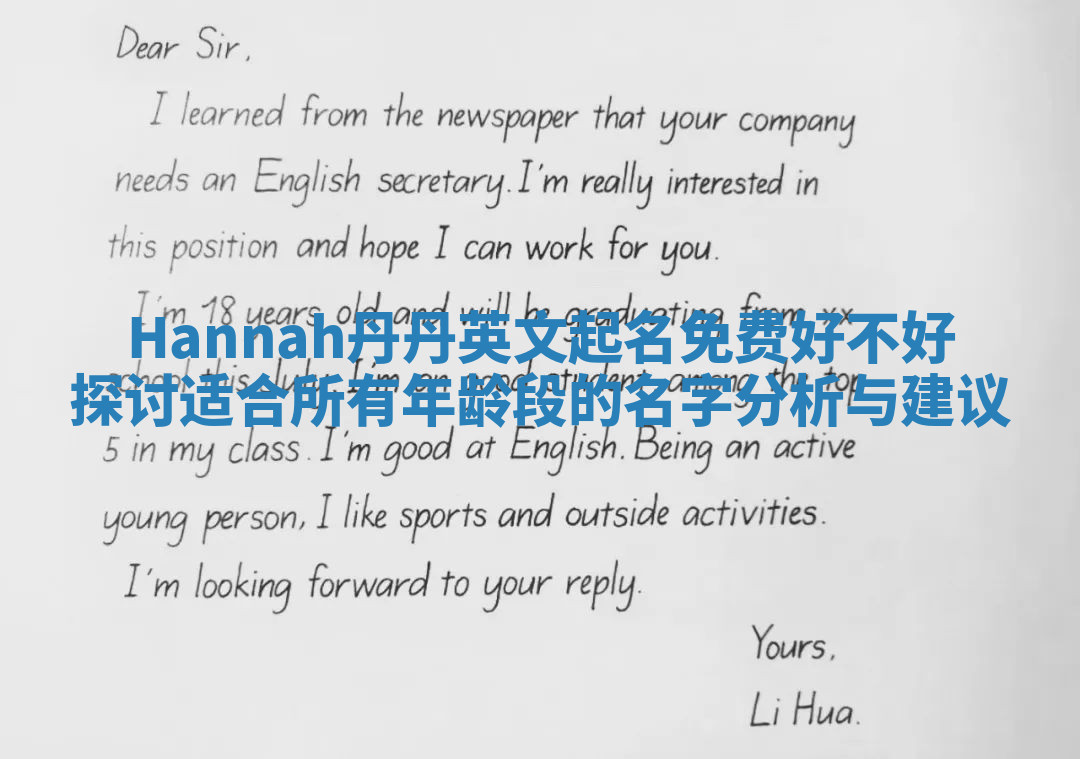 Dear Sir,
I learned from the newspaper that your company
needs an English secretary. I'm really interested in
this position and hope I can work for you.
I'm 18 years old and will be graduating from xx
Hannah丹丹英文起名免费好不好
school this July. I'm an good student among the top
探讨适合所有年龄段的名字分析与建议
5 in my class. I'm good at English. Being an active
young person, I like sports and outside activities.
I'm looking forward to your reply.
Yours,
Li Hua.